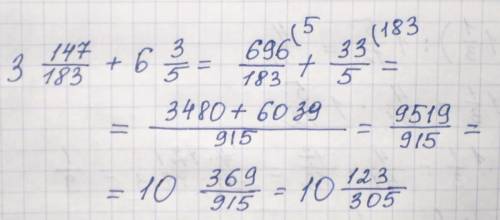 3 147/183 + 6 3/5 = 696/183 (5 + 33/5 (183 =
= 3480 + 6039/915 = 9519/915 =
= 10 369/915 = 10 123/305